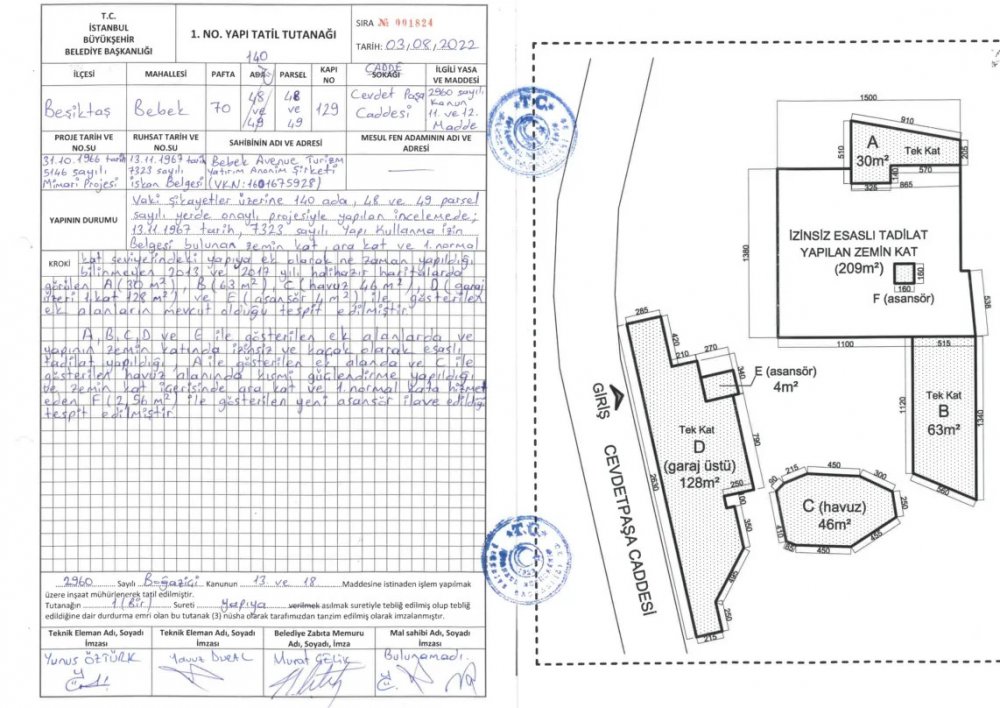 T.C.
İSTANBUL
BÜYÜKŞEHİR
BELEDİYE BAŞKANLIĞI
1. NO. YAPI TATİL TUTANAĞI
SIRA № 001824
TARİH: 03,08,2022
140
İLÇESİ MAHALLESİ PAFTA ADA PARSEL KAPI NO CADDE SOKAĞI İLGİLİ YASA VE MADDESİ
Beşiktaş Bebek 70 48 ve 49 48 ve 49 129 Cevdet Paşa Caddesi 2960 sayılı Kanun 11 ve 12. Madde
PROJE TARİH VE NO.SU RUHSAT TARİH VE NO.SU SAHİBİNİN ADI VE ADRESİ MESUL FEN ADAMININ ADI VE ADRESİ
31.10.1966 tarih 5146 sayılı Mimari Projesi 13.11.1967 tarih 7323 sayılı İskan Belgesi Bebek Avenue Turizm Yatırım Anonim Şirketi (VKN:1601675928) —
YAPININ DURUMU
Vaki şikayetler üzerine 140 ada, 48 ve 49 parsel
sayılı yerde onaylı projesiyle yapılan incelemede;
13.11.1967 tarih, 7323 sayılı Yapı Kullanma İzin
Belgesi bulunan zemin kat, ara kat ve 1.normal
KROKİ
kat seviyesindeki yapıya ek olarak ne zaman yapıldığı
bilinmeyen 2013 ve 2017 yılı halihazır haritalarda
görülen A(30 m²), B(63 m²), C(havuz 46 m²), D(garaj
üzeri 1 kat 128 m²) ve E(asansör 4 m²) ile gösterilen
ek alanların mevcut olduğu tespit edilmiştir.
A, B, C, D ve E ile gösterilen ek alanlarda ve
yapının zemin katında izinsiz ve kaçak olarak esaslı
tadilat yapıldığı, A ile gösterilen ek alanda ve C ile
gösterilen havuz alanında kısmi güçlendirme yapıldığı
ve zemin kat içerisinde ara kat ve 1.normal kata hizmet
eden F(2,56 m²) ile gösterilen yeni asansör ilave edildiği
tespit edilmiştir.
2960 Sayılı Boğaziçi Kanunun 13 ve 18 Maddesine istinaden işlem yapılmak
üzere inşaat mühürlenerek tatil edilmiştir.
Tutanağın 1 (Bir) Sureti yapıya verilmek asılmak suretiyle tebliğ edilmiş olup tebliğ
edildiğine dair durdurma emri olan bu tutanak (3) nüsha olarak tarafımızdan tanzim edilmiş olarak imzalanmıştır.
Teknik Eleman Adı, Soyadı İmzası Teknik Eleman Adı, Soyadı İmzası Belediye Zabıta Memuru Adı, Soyadı, İmza Mal sahibi Adı, Soyadı İmzası
Yunus ÖZTÜRK Yavuz Murat ÇELİK Bulunamadı.
T.C.
T.C.
1500
910
A
Tek Kat
30m²
510
205
140
570
325
865
İZİNSİZ ESASLI TADİLAT
YAPILAN ZEMİN KAT
(209m²)
1380
160
160
F (asansör)
536
1100
515
Tek Kat
B
63m²
1120
1340
560
285
420
210
270
340
E (asansör)
4m²
GİRİŞ
CEVDETPAŞA CADDESİ
Tek Kat
D
(garaj üstü)
128m²
790
2630
250
100
350
495
250
215
C (havuz)
46m²
90
215
450
300
250
455
450
85
410